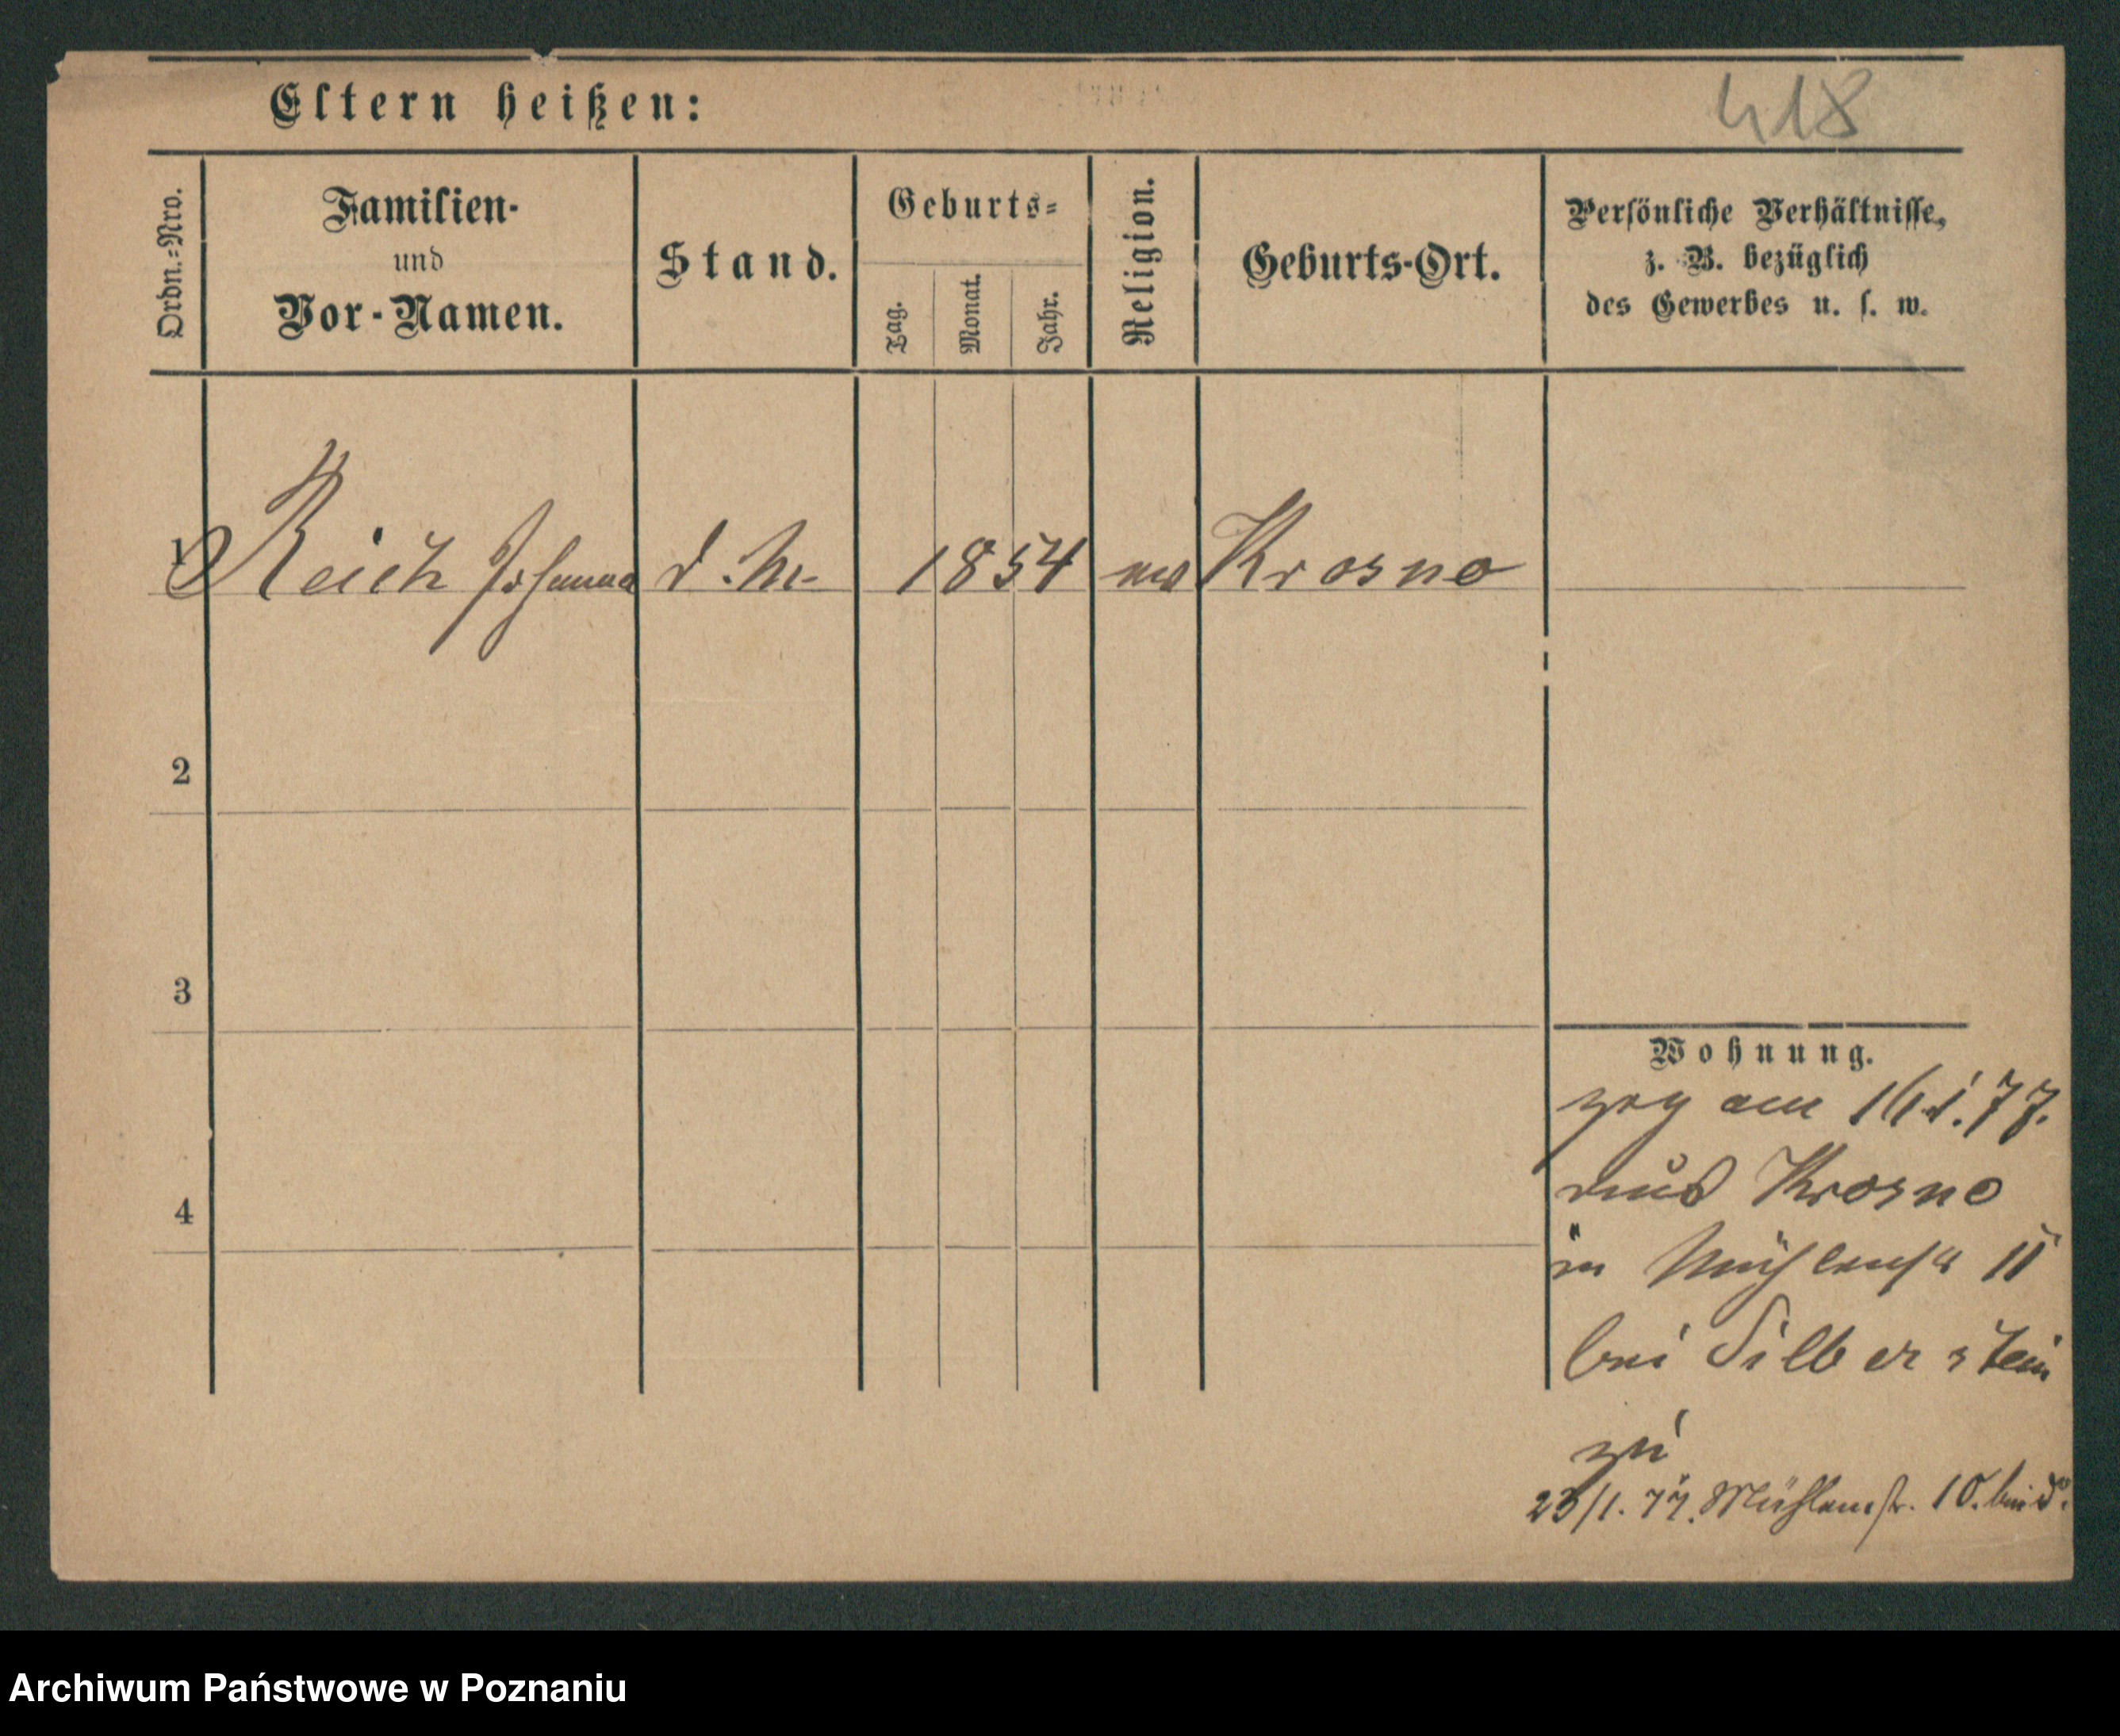 Eltern heißen:
418
Ordn.-Nro.
Familien-
und
Vor-Namen.
Stand.
Geburts-
Tag.
Monat.
Jahr.
Religion.
Geburts-Ort.
Persönliche Verhältnisse,
z. B. bezüglich
des Gewerbes u. s. w.
1 Reich Johanna d. M. 1854 Krosno
2
3
4
Wohnung.
zog am 16.1.77.
aus Krosno
in Mühlenstr 11
bei Silberstein
zu
23/1. 77. Mühlenstr. 10. bei
Archiwum Państwowe w Poznaniu